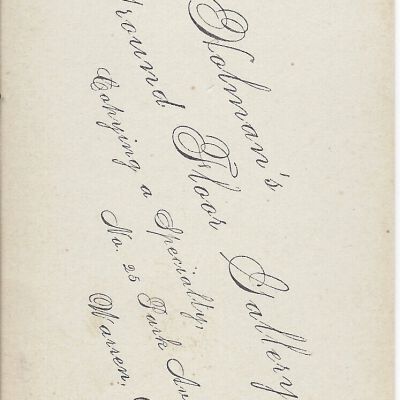 Holman's
Ground Floor Gallery
Copying a Specialty,
No. 25 Park Av
Warren,